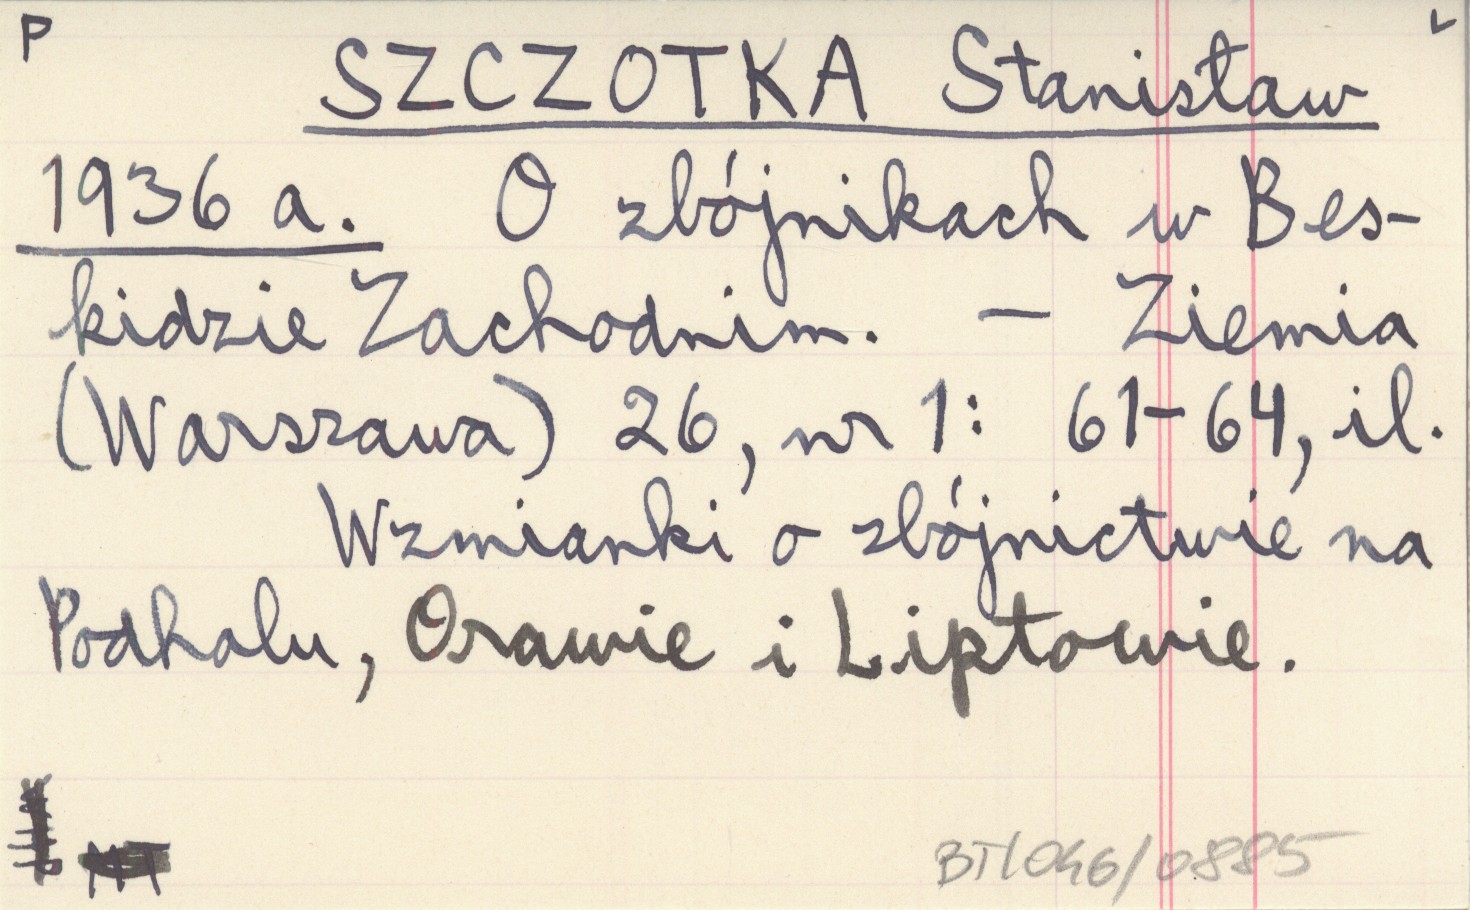 P
SZCZOTKA Stanisław
1936 a. O zbójnikach w Bes-
kidzie Zachodnim. — Ziemia
(Warszawa) 26, nr 1: 61-64, il.
Wzmianki o zbójnictwie na
Podhalu, Orawie i Liptowie.
MT
BT/046/0885